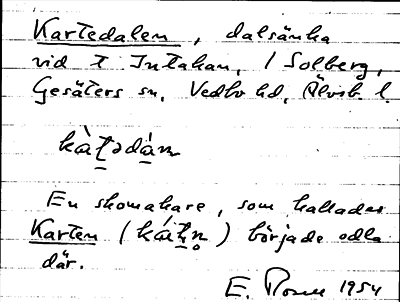 Kartedalen, dalsänka
vid t Intakan, / Solberg,
Gesäters sn, Vedbo hd, Älvsb. l.
kàt̠ədán
En skomakare, som kallades
Karten (kát̠n̥) började odla
där.
E. 1954